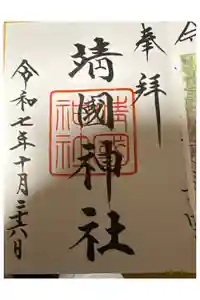 奉拝
靖國神社
靖國神社
令和七年十月二十六日